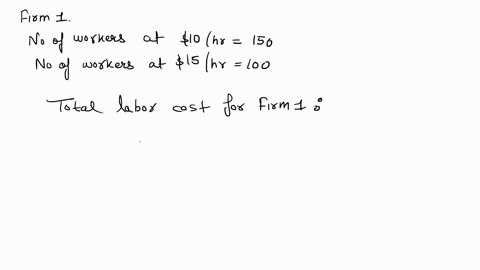 Firm 1.
No of workers at $10/hr = 150
No of workers at $15/hr = 100
Total labor cost for Firm 1 :